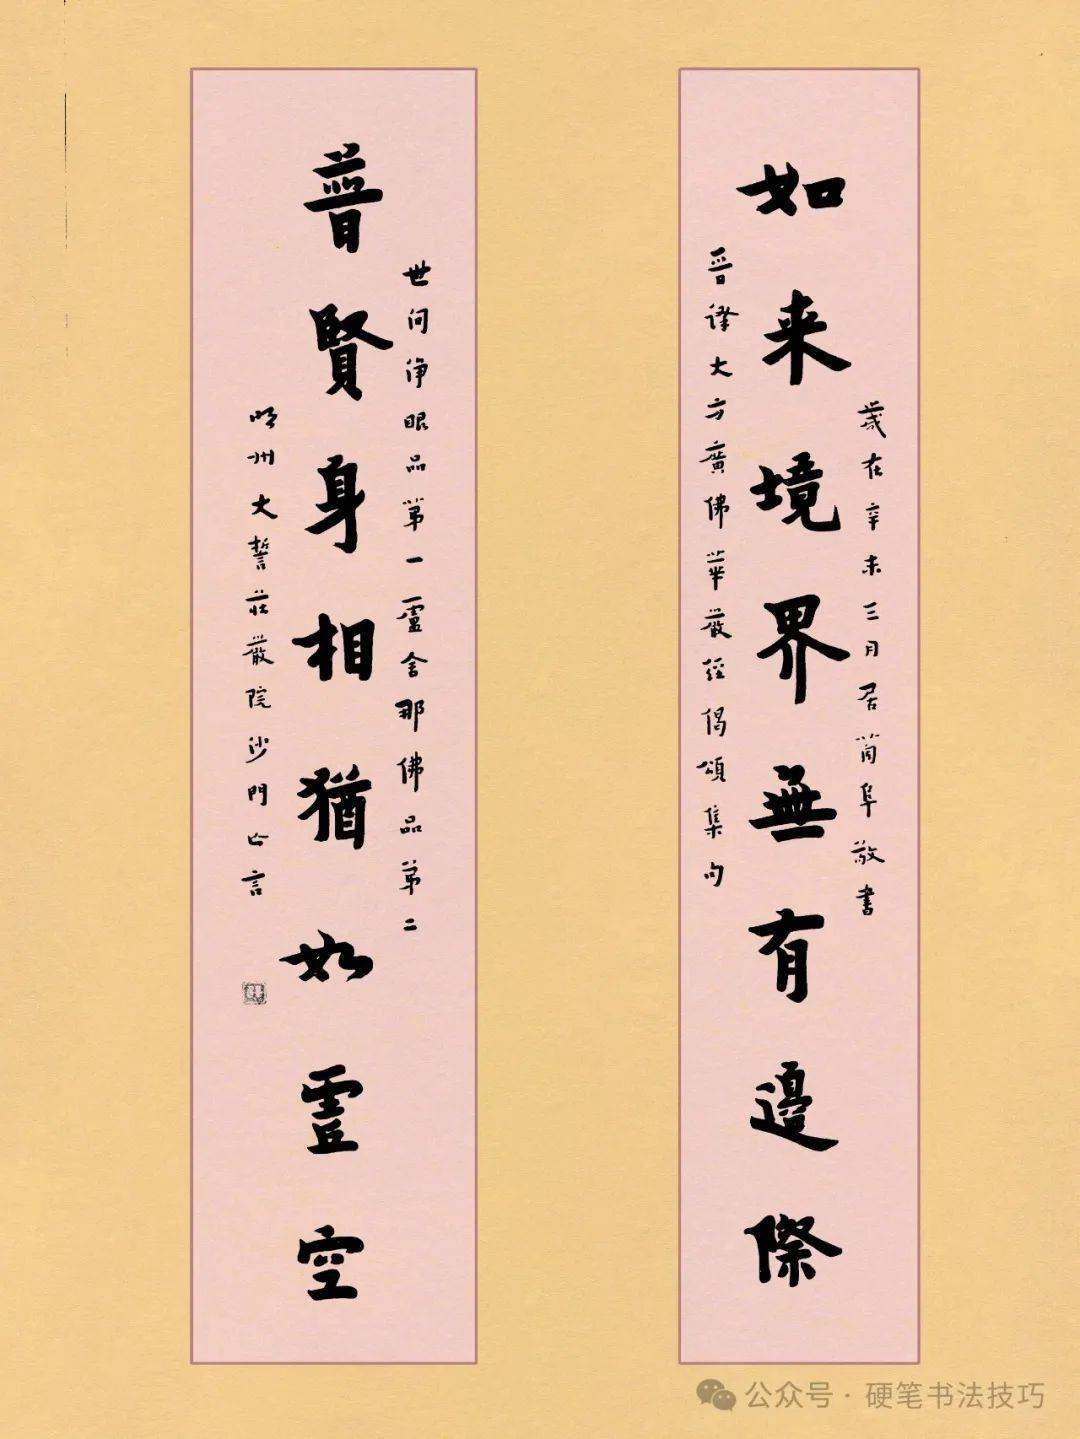 歲在辛未三月居阜敬書
如来境界無有邊際
晉譯大方廣佛華嚴經偈頌集句
世间淨眼品第一盧舍那佛品第二
普賢身相猶如虛空
明州大誓莊嚴院沙門亡言
公众号·硬笔书法技巧